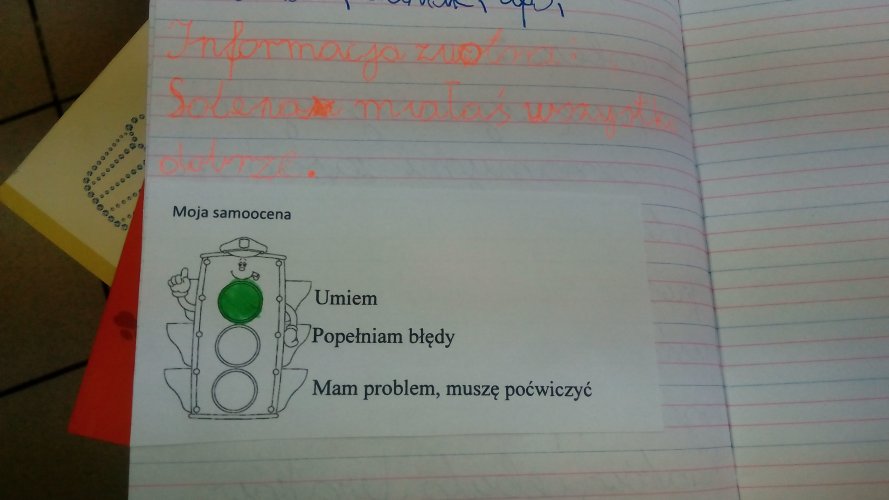 Informacja zwrotna:
miałaś wszystko
dobrze.
Moja samoocena
Umiem
Popełniam błędy
Mam problem, muszę poćwiczyć